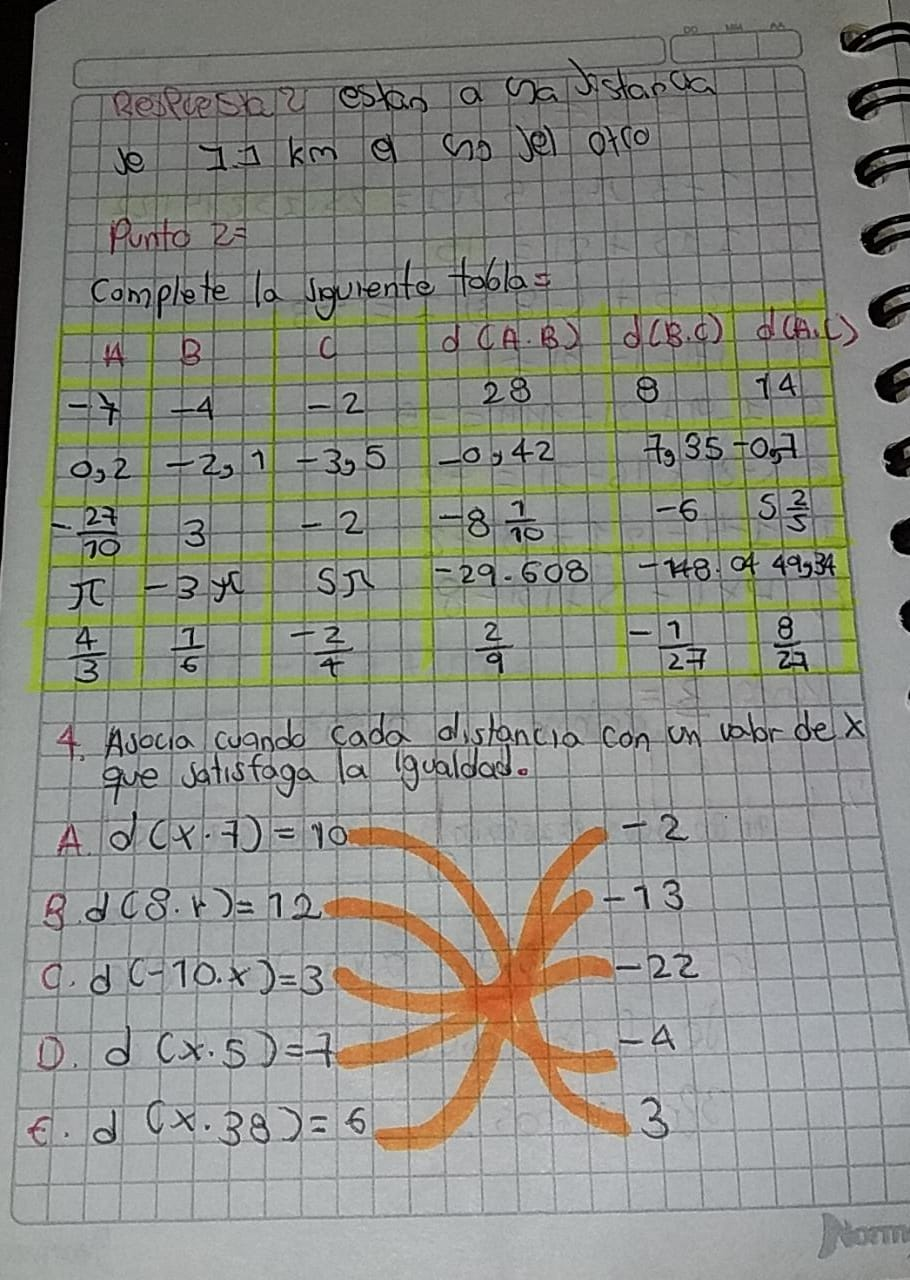 DD MM AA
Respuesta 2 estan a una distancia
de 1.1 km el uno del otro
Punto 2=
Complete la siguiente tabla=
A B C d (A.B) d(B.C) d(A.C)
-7 -4 -2 28 8 14
0,2 -2,1 -3,5 -0,42 7,35 -0,7
-27/10 3 -2 -8 1/10 -6 5 2/5
π -3π 5π -29.608 -148.04 49,34
4/3 1/6 -2/4 2/9 -1/27 8/27
4. Asocia cuando cada distancia con un valor de x
que satisfaga la igualdad.
A. d(x.7)=10 -2
B. d(8.x)=12 -13
C. d(-10.x)=3 -22
D. d (x.5)=7 -4
E. d (x.38)=6 3
Norm